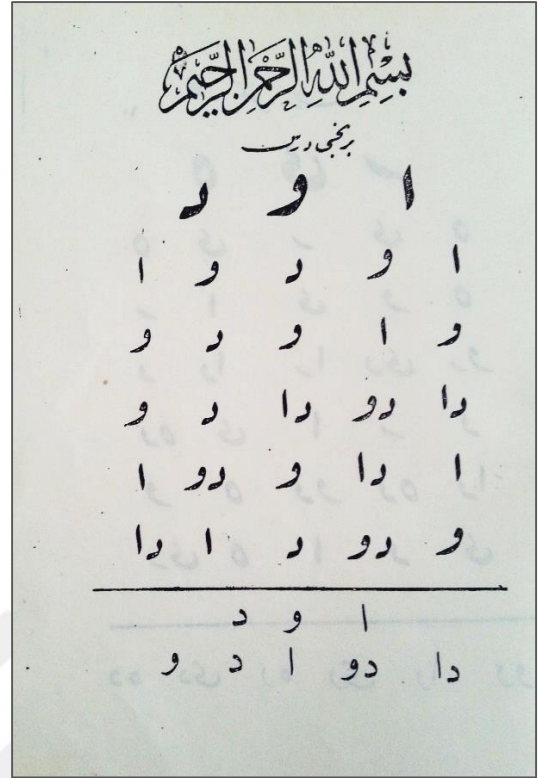 بِسْمِ اللهِ الرَّحْمٰنِ الرَّحِيمِ
برنجى درس
ا و د
ا و د و ا
و ا و د و
دا دو دا د و
ا دا و دو ا
و دو د ا دا
ا و د
دا دو ا د و